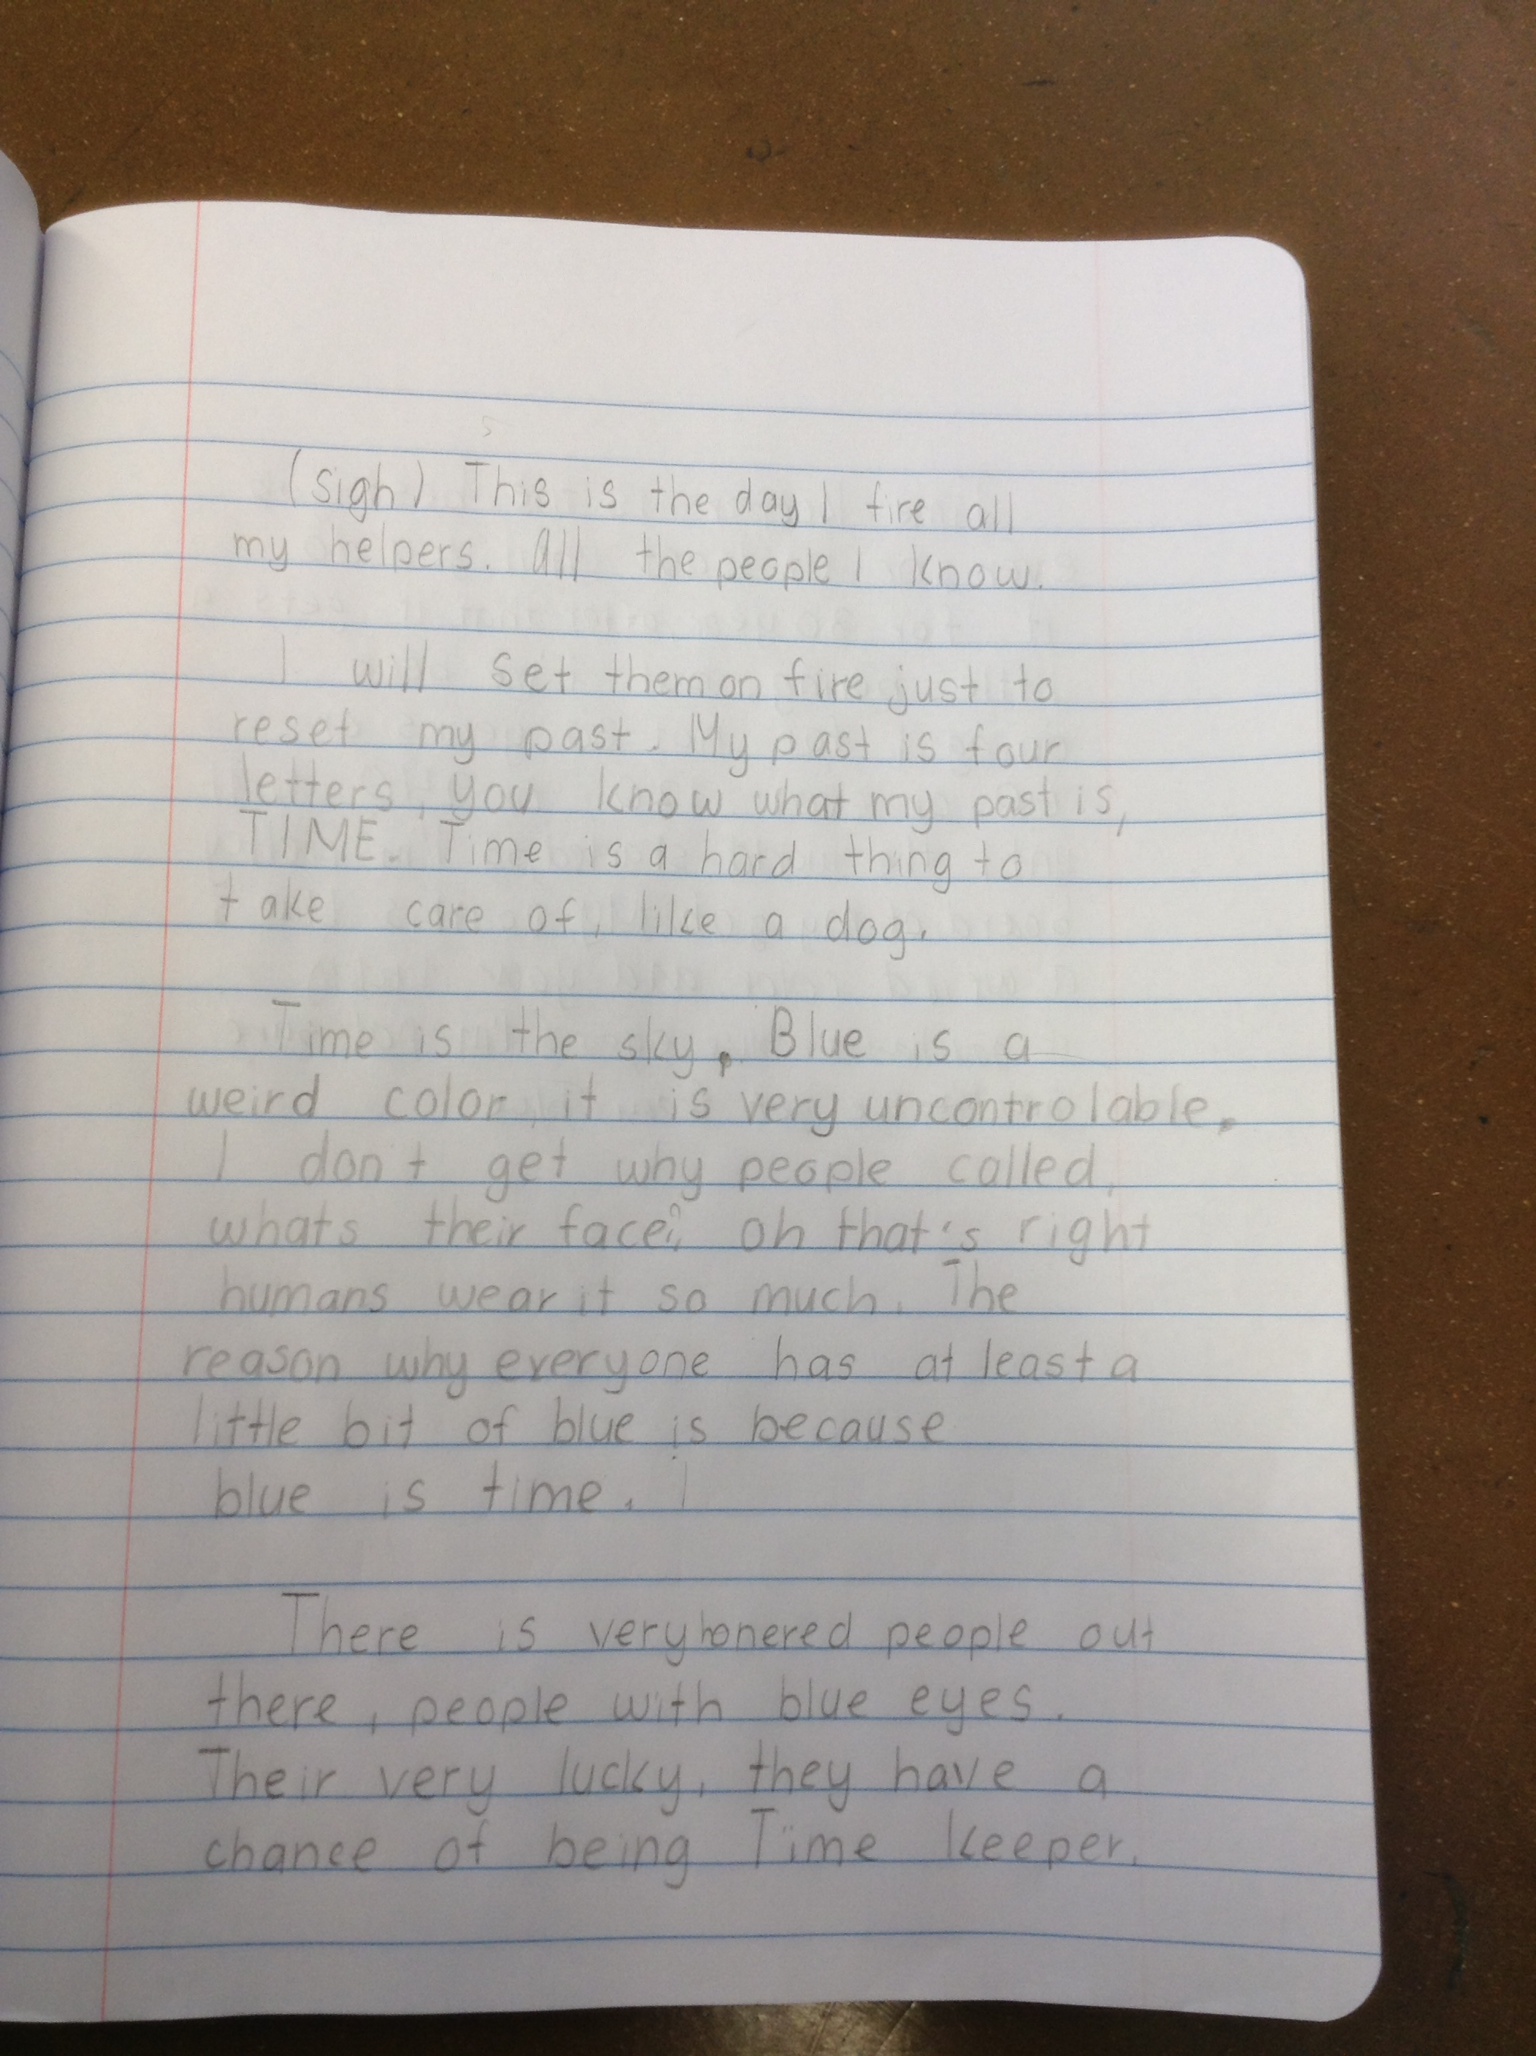 (sigh) This is the day I fire all
my helpers. All the people I know.
I will set them on fire just to
reset my past. My past is four
letters, you know what my past is,
TIME. Time is a hard thing to
take care of, like a dog.
Time is the sky. Blue is a
weird color, it is very uncontrolable.
I don't get why people called,
whats their face? oh that's right
humans wear it so much. The
reason why everyone has at least a
little bit of blue is because
blue is time.
There is very honered people out
there, people with blue eyes.
Their very lucky, they have a
chance of being Time keeper.